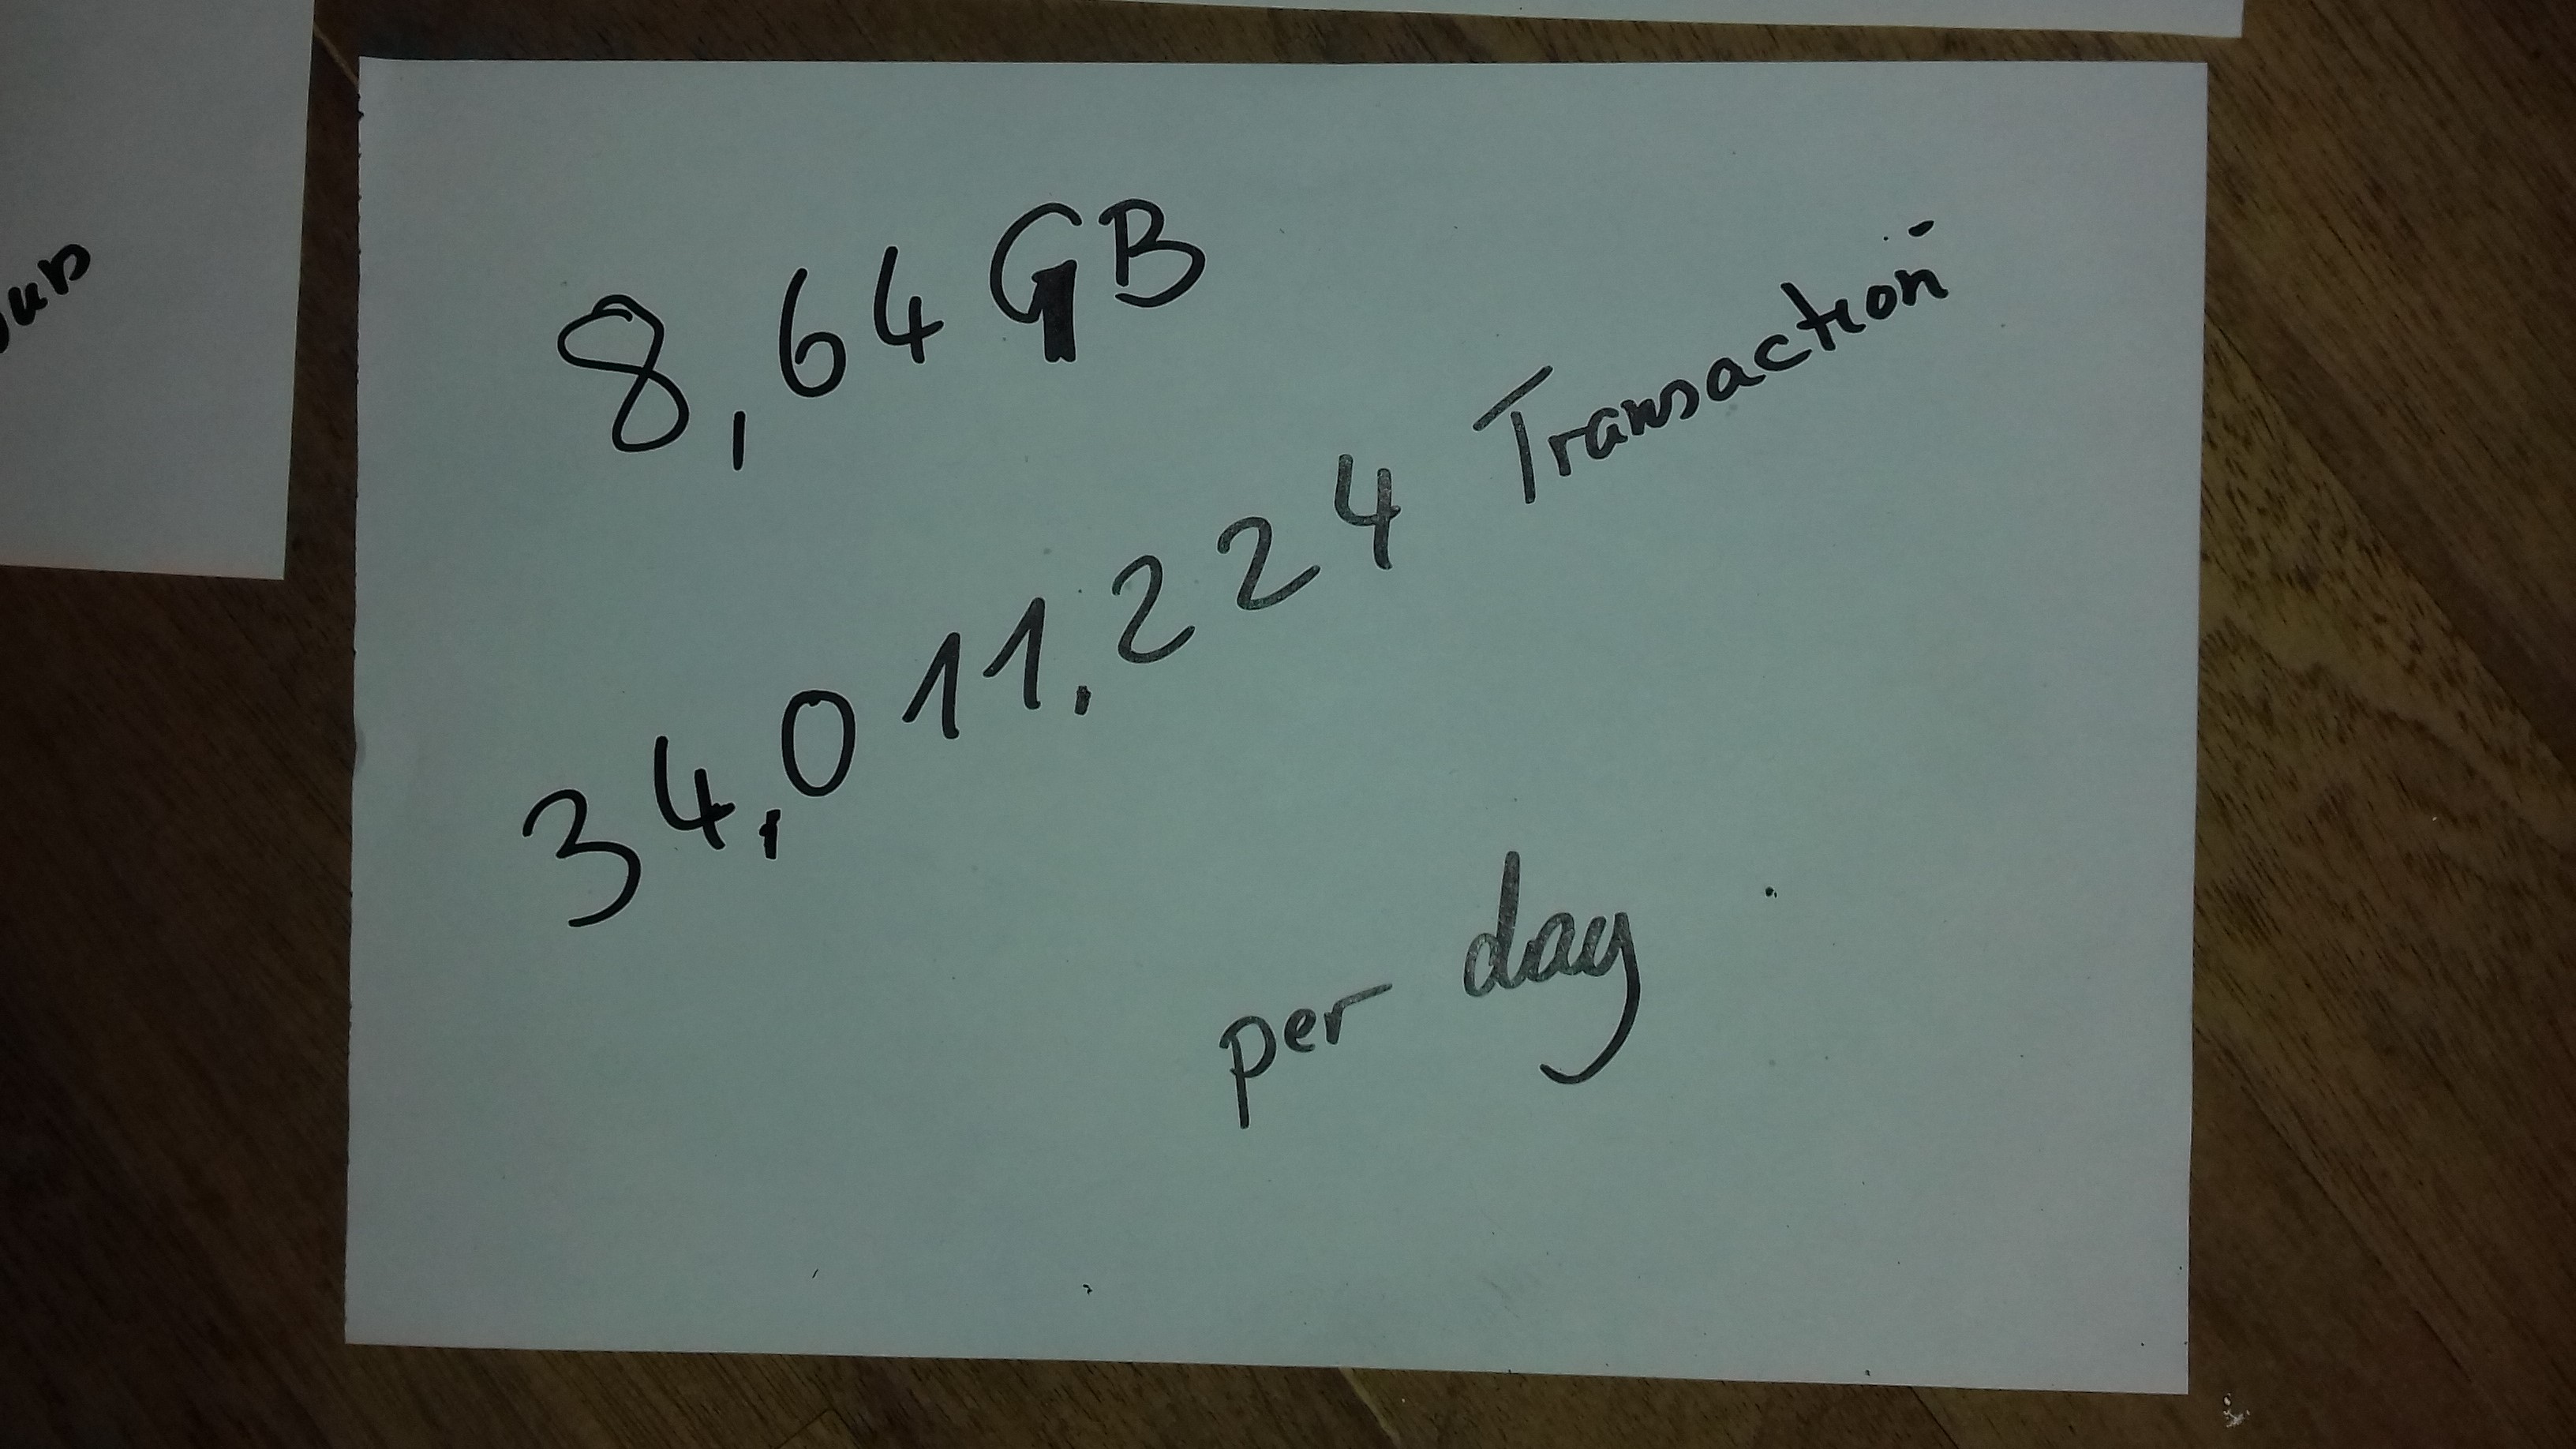 8,64 GB
34,011,224 Transaction
per day